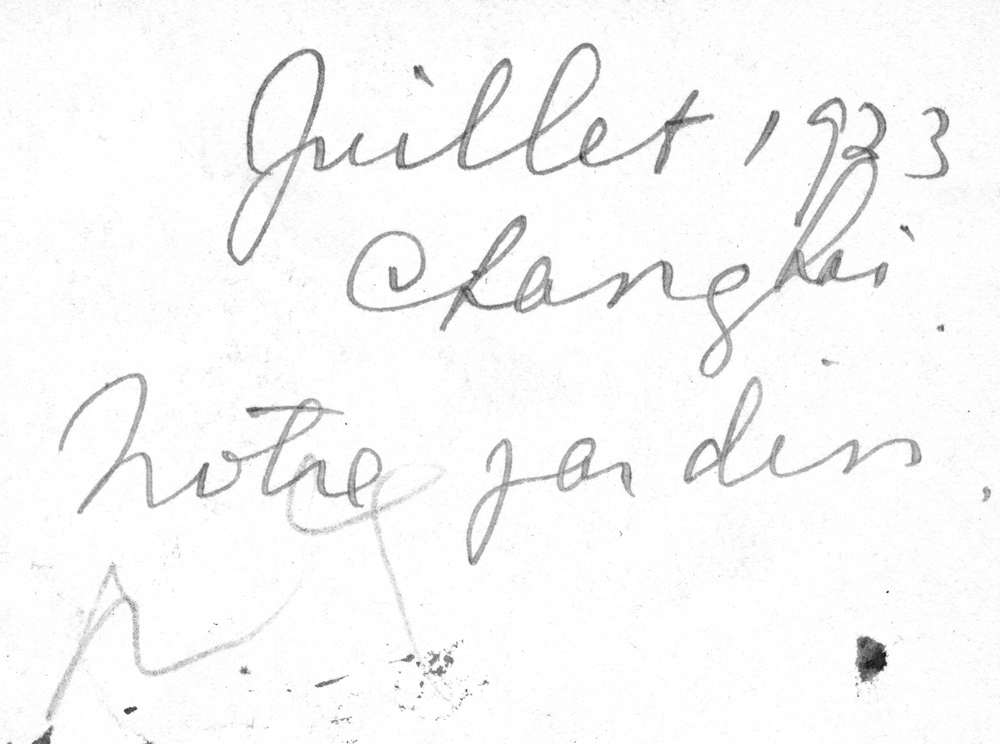 Juillet 1933
Changhai
Notre jardin